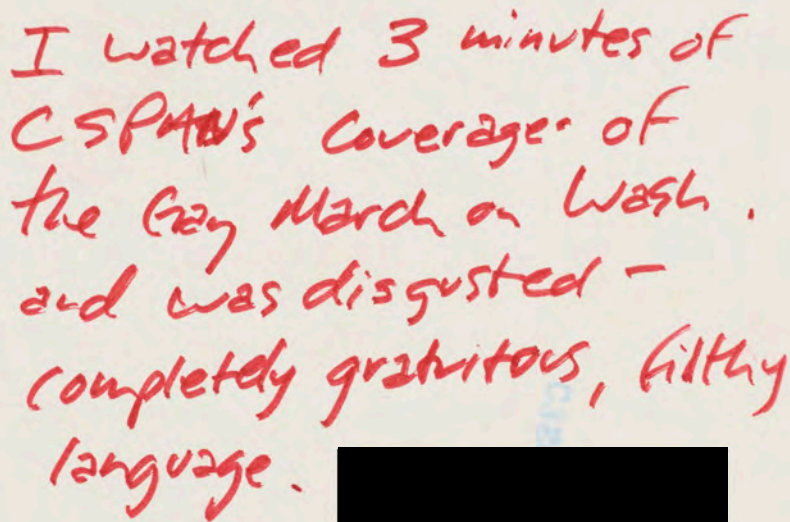 I watched 3 minutes of
CSPAN's coverage of
the Gay March on Wash.
and was disgusted -
completely gratuitous, filthy
language.